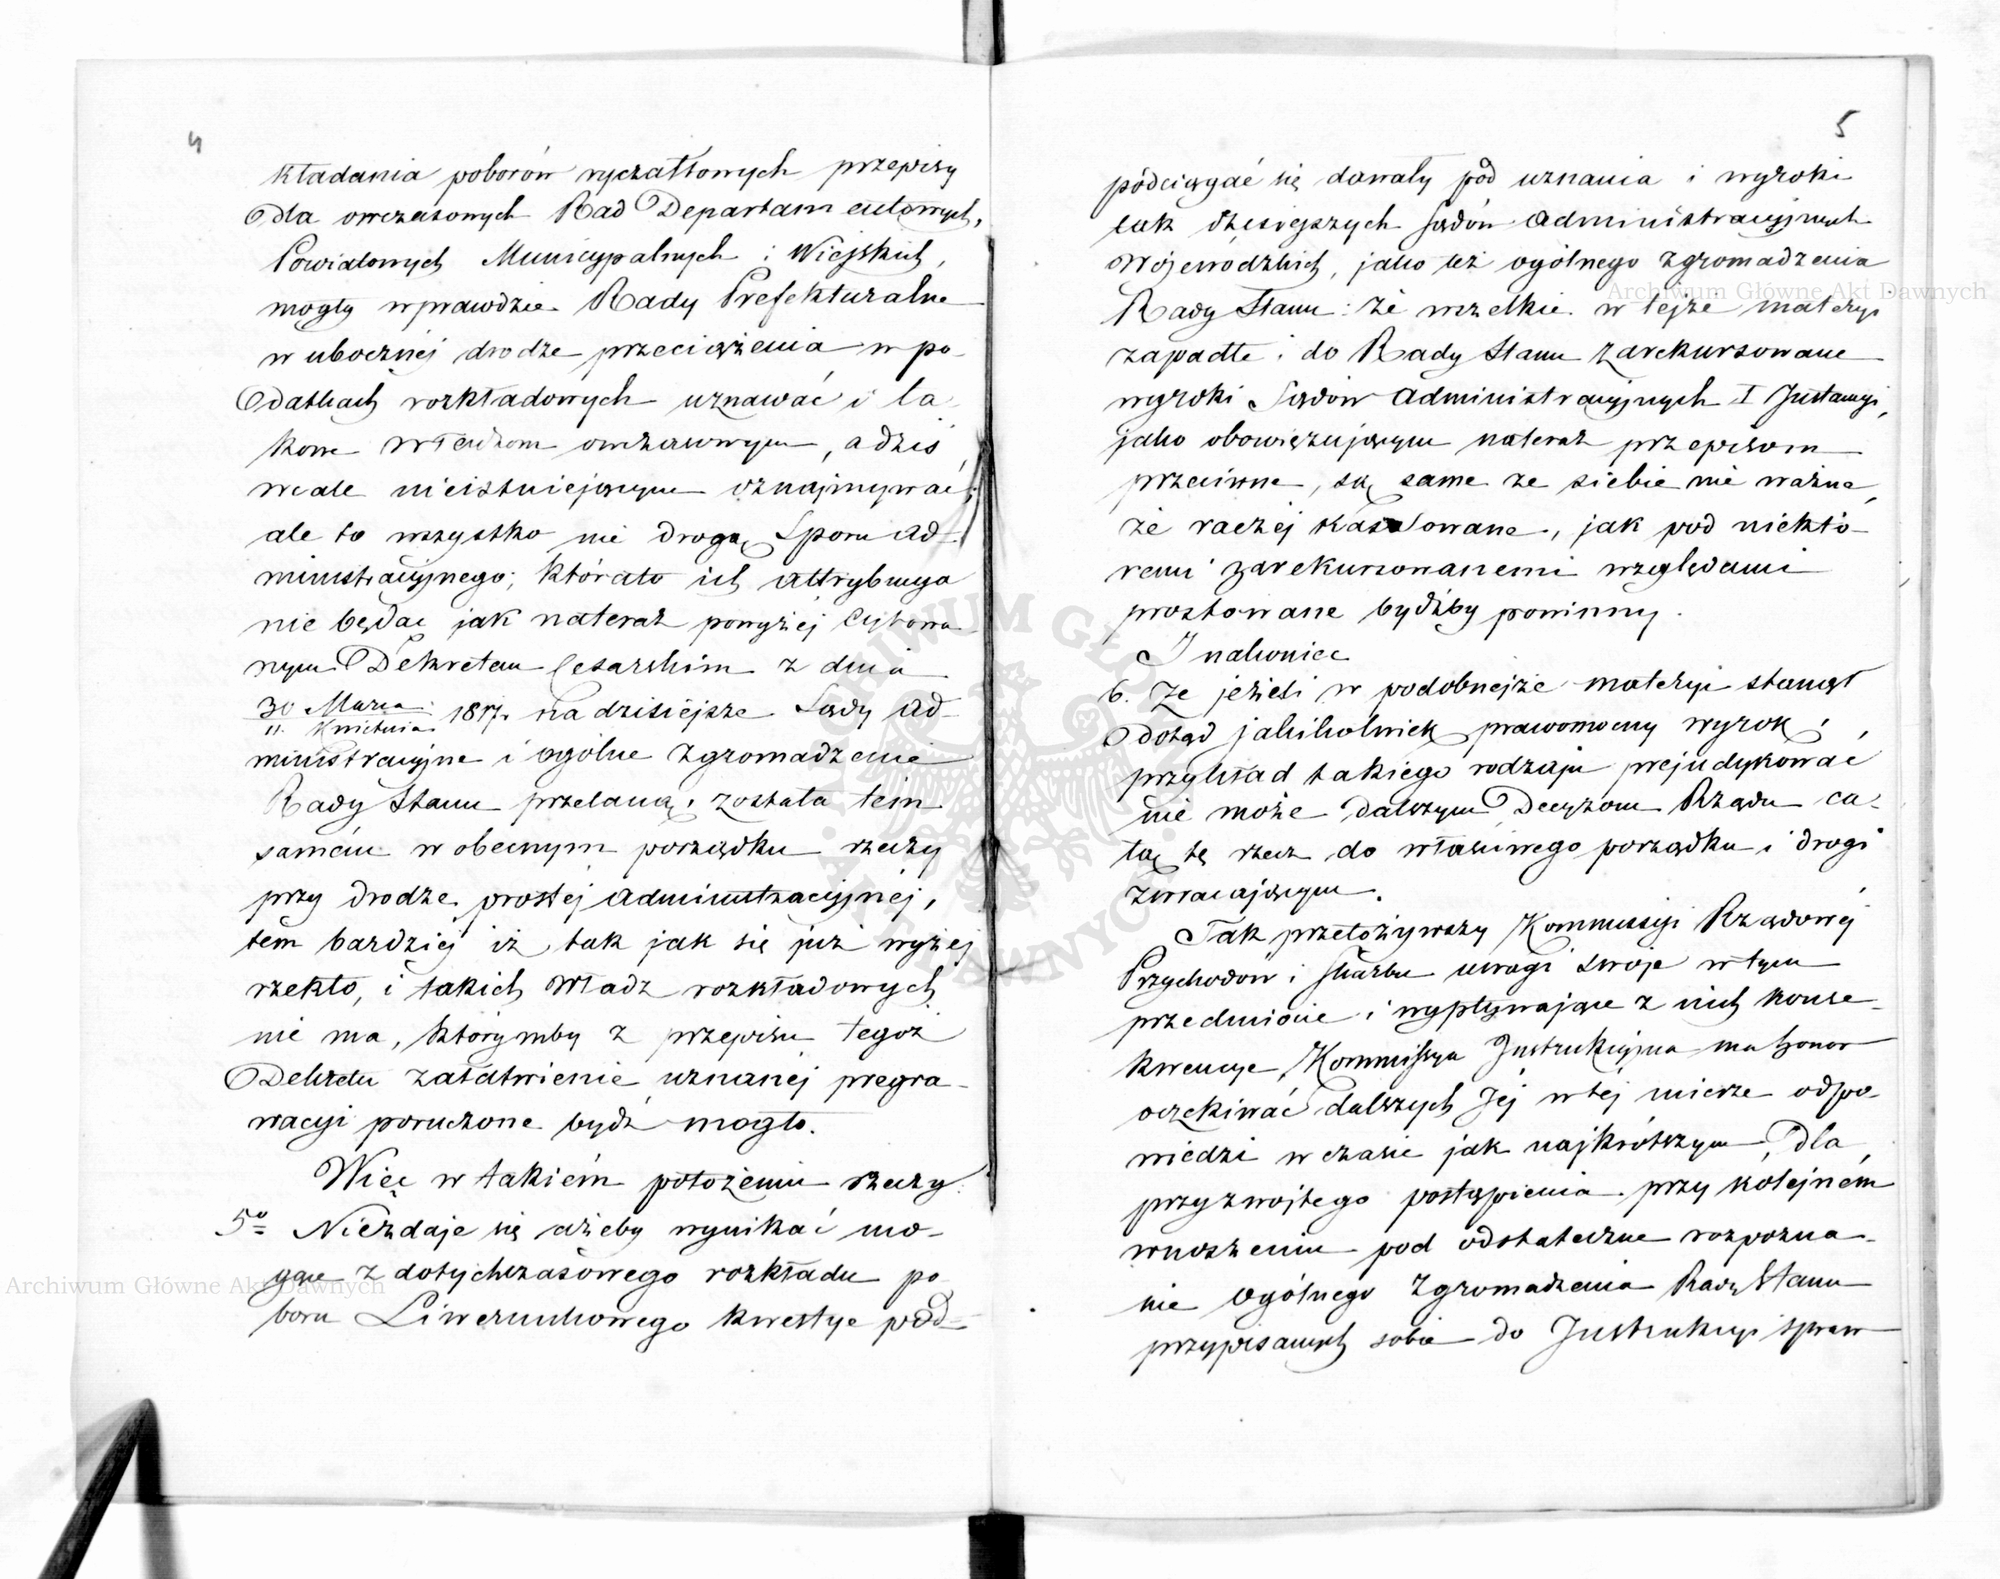 4
kładania poborów ryczałtowych przepisy
dla owczasowych Rad Departamentowych,
Powiatowych Municypalnych i Wiejskich,
mogły wprawdzie Rady Prefekturalne
w ubocznéj drodze przeciążenia w po-
datkach rozkładowych uznawać i ta-
kowe Władzom owczasowym, a dziś
wcale nieistniejącym oznajmywać;
ale to wszystko nie drogą Sporu ad-
ministracyjnego, którato ich attrybucya
nie będąc jak nateraz powyżéj cytowa-
nym Dekretem Cesarskim z dnia
30 Marca
11 Kwietnia 1817. na dzisiejsze Sądy ad-
ministracyjne i ogólne zgromadzenie
Rady Stanu przelaną, została tém
samém w obecnym porządku rzeczy
przy drodze prostéj administracyjnéj,
tém bardziéj iż tak jak się już wyżéj
rzekło, i takich Władz rozkładowych
nie ma, którymby z przepisu tegoż
Dekretu załatwienie uznanéj pregra-
wacyi poruczone bydź mogło.
Więc w takiém położeniu rzeczy:
5º Niezdaje się ażeby wynikać mo-
gące z dotychczasowego rozkładu po-
boru Liwerunkowego kwestye pod-
5
pódciągać się dawały pod uznania i wyroki
tak dzisiejszych Sądów administracyjnych
Wojewódzkich, jako też ogólnego zgromadzenia
Rady Stanu: że wszelkie w tejże materyi
zapadłe i do Rady Stanu zarekursowane
wyroki Sądów administracyjnych I Instancyi,
jako obowiązującym nateraz przepisom
przeciwne, są same ze siebie nie ważne,
że raczéj kassowane, jak pod niektó-
remi zarekursowanemi względami
prostowane bydźby powinny.
I nakoniec
6. że jeżeli w podobnejże materyi stanął
dotąd jakikolwiek prawomocny wyrok,
przykład takiego rodzaju prejudykować
nie może dalszym Decyzom Rządu ca-
łą tę rzecz do właściwego porządku i drogi
zwracającym.
Tak przełożywszy Kommissyi Rządowéj
Przychodów i Skarbu uwagi swoje w tym
przedmiocie i wypływające z nich konse-
kwencye, Kommissya Instrukcyjna ma honor
oczekiwać dalszych Jéj w téj mierze odpo-
wiedzi w czasie jak najkrótszym, dla
przyzwoitego postąpienia przy koléjném
wnoszeniu pod odstateczne rozpozna-
nie ogólnego Zgromadzenia Rady Stanu
przypisanych sobie do Instrukcyi spraw
Archiwum Główne Akt Dawnych
Archiwum Główne Akt Dawnych